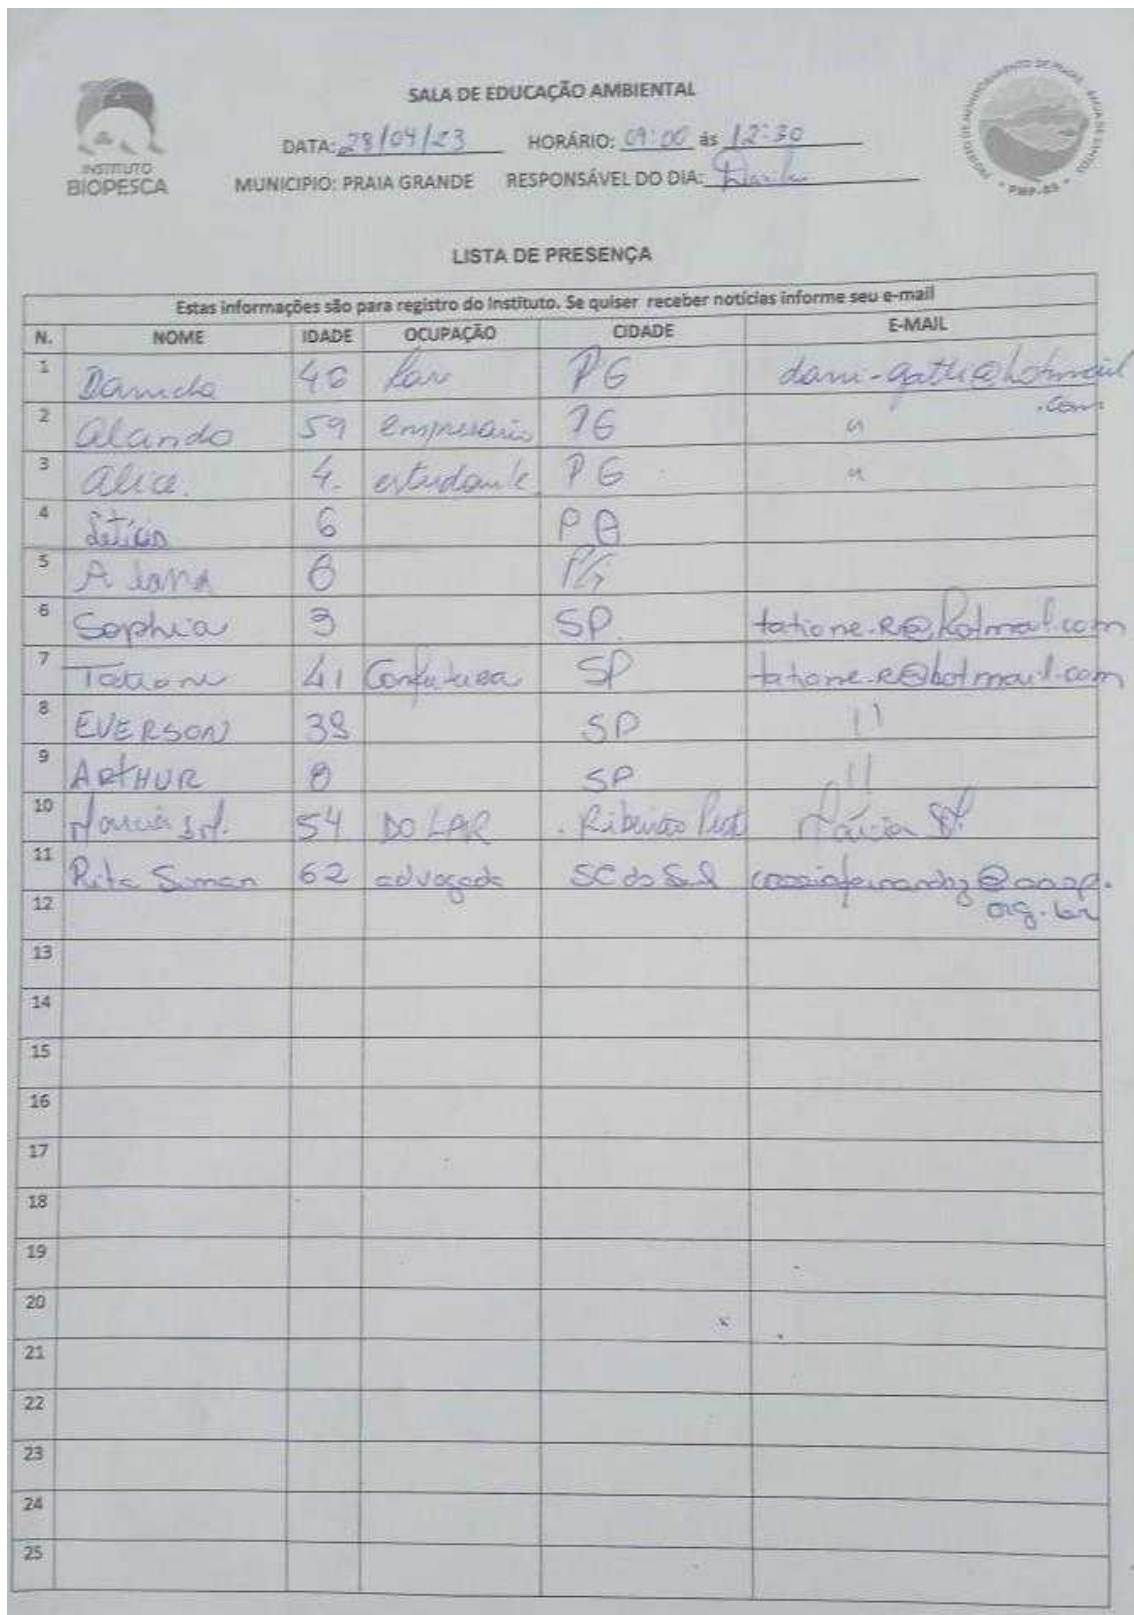 SALA DE EDUCAÇÃO AMBIENTAL
DATA: 28/04/23 HORÁRIO: 09:00 às 12:30
INSTITUTO
BIOPESCA
MUNICIPIO: PRAIA GRANDE RESPONSÁVEL DO DIA:
PMP-BS
LISTA DE PRESENÇA
Estas informações são para registro do Instituto. Se quiser receber notícias informe seu e-mail
N. NOME IDADE OCUPAÇÃO CIDADE E-MAIL
1 Daniela 46 Lar PG @hotmail
.com
2 59 empresario PG "
3 Alice. 4. estudante PG "
4 Letícia 6 PG
5 6 PG
6 Sophia 3 SP. tatiane.R@hotmail.com
7 Tatiane 41 SP tatiane.R@hotmail.com
8 EVERSON 38 SP 11
9 ARTHUR 8 SP 11
10 Marcia 54 DO LAR Ribeirão Márcia
11 Rita 62 advogada SC do Sul @aasp.
org.br
12
13
14
15
16
17
18
19
20
21
22
23
24
25